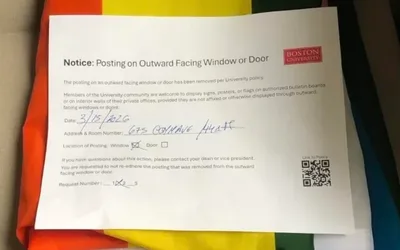 Notice: Posting on Outward Facing Window or Door
BOSTON
UNIVERSITY
The posting on an outward facing window or door has been removed per University policy.
Members of the University community are welcome to display signs, posters, or flags on authorized bulletin boards
or on interior walls of their private offices, provided they are not affixed or otherwise displayed through outward
facing windows or doors.
Date: 3/15/2026
Address & Room Number: 675 COMMAVE /
Location of Posting: Window Door
If you have questions about this action, please contact your dean or vice president.
You are requested to not re-affix the posting that was removed from the outward
facing window or door.
Request Number: